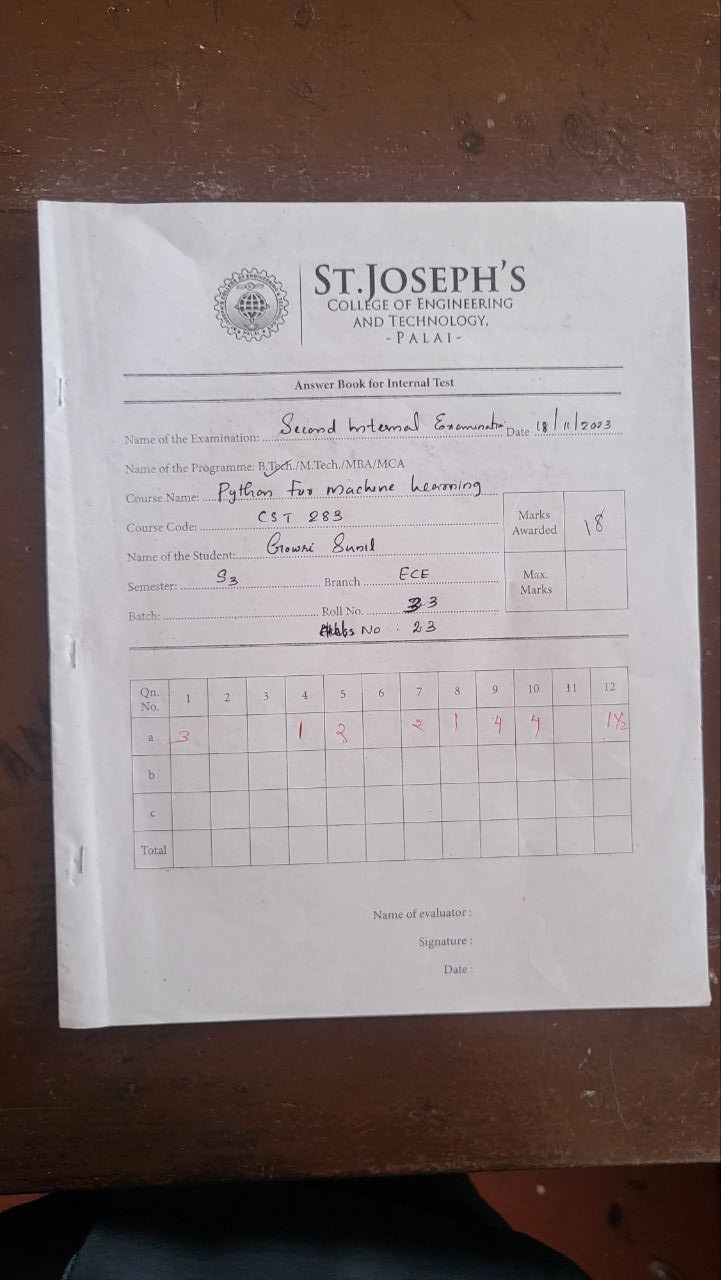 ST.JOSEPH'S
COLLEGE OF ENGINEERING
AND TECHNOLOGY,
- PALAI -
Answer Book for Internal Test
Name of the Examination: Second Internal Examinatio Date 18/11/2023
Name of the Programme: B.Tech./M.Tech./MBA/MCA
Course Name: Python for machine learning
Course Code: CST 283
Name of the Student: Gowri Sunil
Semester: S3 Branch ECE
Batch: Roll No. 33
No : 23
Marks Awarded 18
Max. Marks
Qn. No. 1 2 3 4 5 6 7 8 9 10 11 12
a 3 1 2 1 4 4 1½
b
c
Total
Name of evaluator :
Signature :
Date :